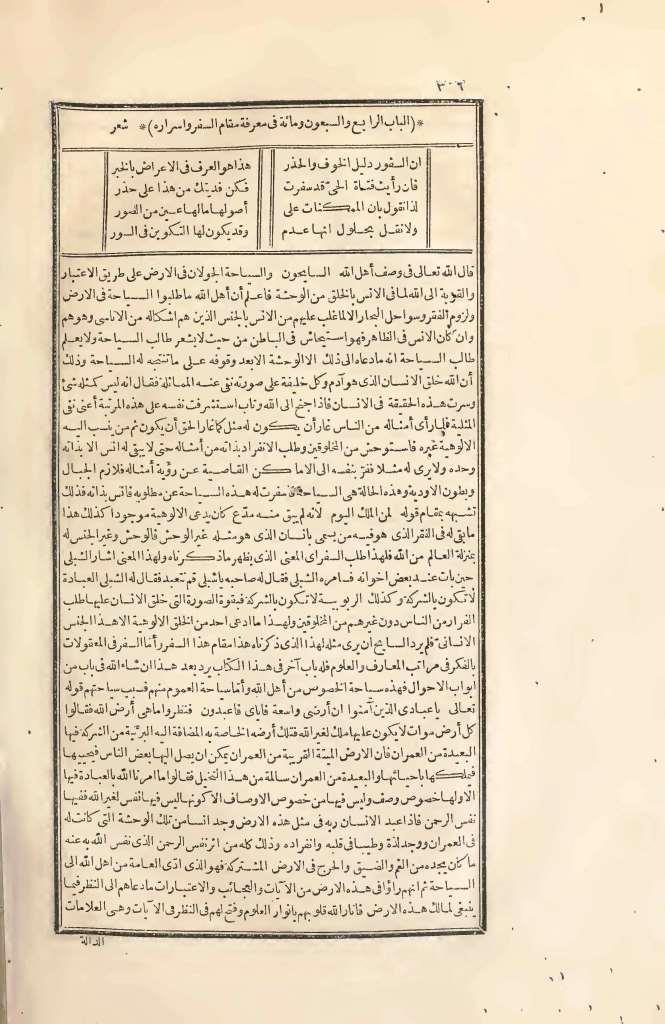 ٣٠٦
*(الباب الرابع والسبعون ومائة فى معرفة مقام السفر واسراره)* شعر
ان السفور دليل الخوف والحذر هذا هو العرف فى الاعراض بالخبر
فان رأيت فتاة الحى قد سفرت فكن فديتك من هذا على حذر
لذا نقول بان الممكنات على أصولها ما لها عين من الصور
ولا نقل بحلول انها عدم وقد يكون لها التكوين فى السور
قال الله تعالى فى وصف أهل الله السايحون والسياحة الجولان فى الارض على طريق الاعتبار
والقربة الى الله لما فى الانس بالخلق من الوحشة فاعلم أن أهل الله ما طلبوا السياحة فى الارض
ولزوم القفر وسواحل البحار الا لما غلب عليهم من الانس بالجنس الذين هم اشكاله من الاناسى وهو هم
وان كان الانس فى الظاهر فهو استيحاش فى الباطن من حيث لا يشعر طالب السياحة ولا يعلم
طالب السياحة انه ما دعاه الى ذلك الا الوحشة الا بعد وقوفه على ما تنتجه له السياحة وذلك
أن الله خلق الانسان الذى هو آدم وكل خليفة على صورته نفى عنه المماثلة فقال انه ليس كمثله شئ
وسرت هذه الحقيقة فى الانسان فاذا جنح الى الله وتاب استشرفت نفسه على هذه المرتبة أعنى نفى
المثلية فلما رأى أمثاله من الناس غار أن يكون له مثل كما غار الحق أن يكون ثم من ينسب اليه
الالوهية غيره فاستوحش من المخلوقين وطلب الانفراد بذاته من أمثاله حتى لا يبقى له انس الا بذاته
وحده ولا يرى له مثلا ففر بنفسه الى الاماكن القاصية عن رؤية أمثاله فلازم الجبال
وبطون الاودية وهذه الحالة هى السياحة سفرت له هذه السياحة عن مطلوبه فانس بذاته فذلك
تشبهه بمقام قوله لمن الملك اليوم لانه لم يبق منه مدّع كان يدعى الالوهية موجودا كذلك هذا
ما بقى له فى القفر الذى هو فيه من يسمى بانسان الذى هو مثله غير الوحش فالوحش وغير الجنس له
بمنزلة العالم من الله فلهذا طلب السفر اى المعنى الذى يظهر ما ذكرناه ولهذا المعنى اشار الشبلى
حين بات عند بعض اخوانه فسامره الشبلى فقال له صاحبه يا شبلى قم نتعبد فقال له الشبلى العبادة
لا تكون بالشركة وكذلك الربوبية لا تكون بالشركة فبقوة الصورة التى خلق الانسان عليها طلب
الفرار من الناس دون غيرهم من المخلوقين ولهذا ما ادعى احد من الخلق الالوهية الا هذا الجنس
الانسانى فلم يرد السايح ان يرى مثله لهذا الذى ذكرناه هذا مقام هذا السفر وأما السفر فى المعقولات
بالفكر فى مراتب المعارف والعلوم فله باب آخر فى هذا الكتاب يرد بعد هذا ان شاء الله فى باب من
ابواب الاحوال فهذه سياحة الخصوص من أهل الله وأما سياحة العموم منهم فسبب سياحتهم قوله
تعالى يا عبادى الذين آمنوا ان أرضى واسعة فاياى فاعبدون فنظروا ما هى أرض الله فقالوا
كل أرض موات لا يكون عليها ملك لغير الله فتلك أرضه الخاصة به المضافة اليه البريّة من الشركة فيها
البعيدة من العمران فان الارض الميتة القريبة من العمران يمكن ان يصل اليها بعض الناس فيحييها
فيملكها باحيائها والبعيدة من العمران سالمة من هذا التخيل فقالوا ما امرنا الله بالعبادة فيها
الا ولها خصوص وصف وليس فيها من خصوص الاوصاف الا كونها ليس فيها نفس لغير الله ففيها
نفس الرحمن فاذا عبد الانسان ربه فى مثل هذه الارض وجد انسا من تلك الوحشة التى كانت له
فى العمران ووجد لذة وطيبا فى قلبه وانفراده وذلك كله من اثر نفس الرحمن الذى نفس الله به عنه
ما كان يجده من الغم والضيق والحرج فى الارض المشتركة فهو الذى ادّى العامة من اهل الله الى
السياحة ثم انهم رأوا فى هذه الارض من الآيات والعجائب والاعتبارات ما دعاهم الى النظر فيما
ينبغى لمالك هذه الارض فانار الله قلوبهم بانوار العلوم وفتح لهم فى النظر فى الآيات وهى العلامات
الدالة